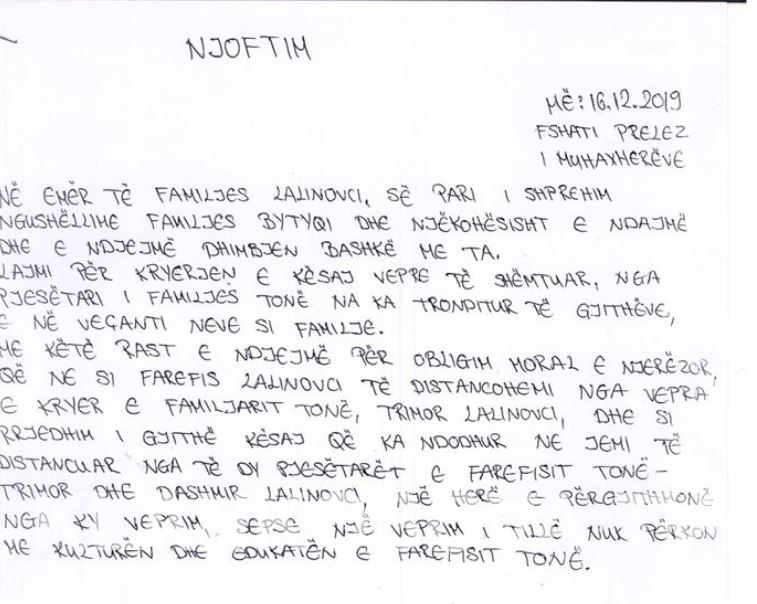 NJOFTIM
MË: 16.12.2019
FSHATI PRELEZ
I MUHAXHERËVE
NË EMËR TË FAMILJES LALINOVCI, SË PARI I SHPREHIM
NGUSHËLLIME FAMILJES BYTYQI DHE NJËKOHËSISHT E NDAJMË
DHE E NDJEJMË DHIMBJEN BASHKË ME TA.
LAJMI PËR KRYERJEN E KËSAJ VEPRE TË SHËMTUAR, NGA
PJESËTARI I FAMILJES TONË NA KA TRONDITUR TË GJITHËVE,
E NË VEÇANTI NEVE SI FAMILJE.
ME KËTË RAST E NDJEJMË PËR OBLIGIM MORAL E NJERËZOR,
QË NE SI FAREFIS LALINOVCI TË DISTANCOHEMI NGA VEPRA
E KRYER E FAMILJARIT TONË, TRIMOR LALINOVCI, DHE SI
RRJEDHIM I GJITHË KËSAJ QË KA NDODHUR NE JEMI TË
DISTANCUAR NGA TË DY PJESËTARËT E FAREFISIT TONË-
TRIMOR DHE DASHMIR LALINOVCI, NJË HERË E PËRGJITHMONË
NGA KY VEPRIM, SEPSE NJË VEPRIM I TILLË NUK PËRKON
ME KULTURËN DHE EDUKATËN E FAREFISIT TONË.